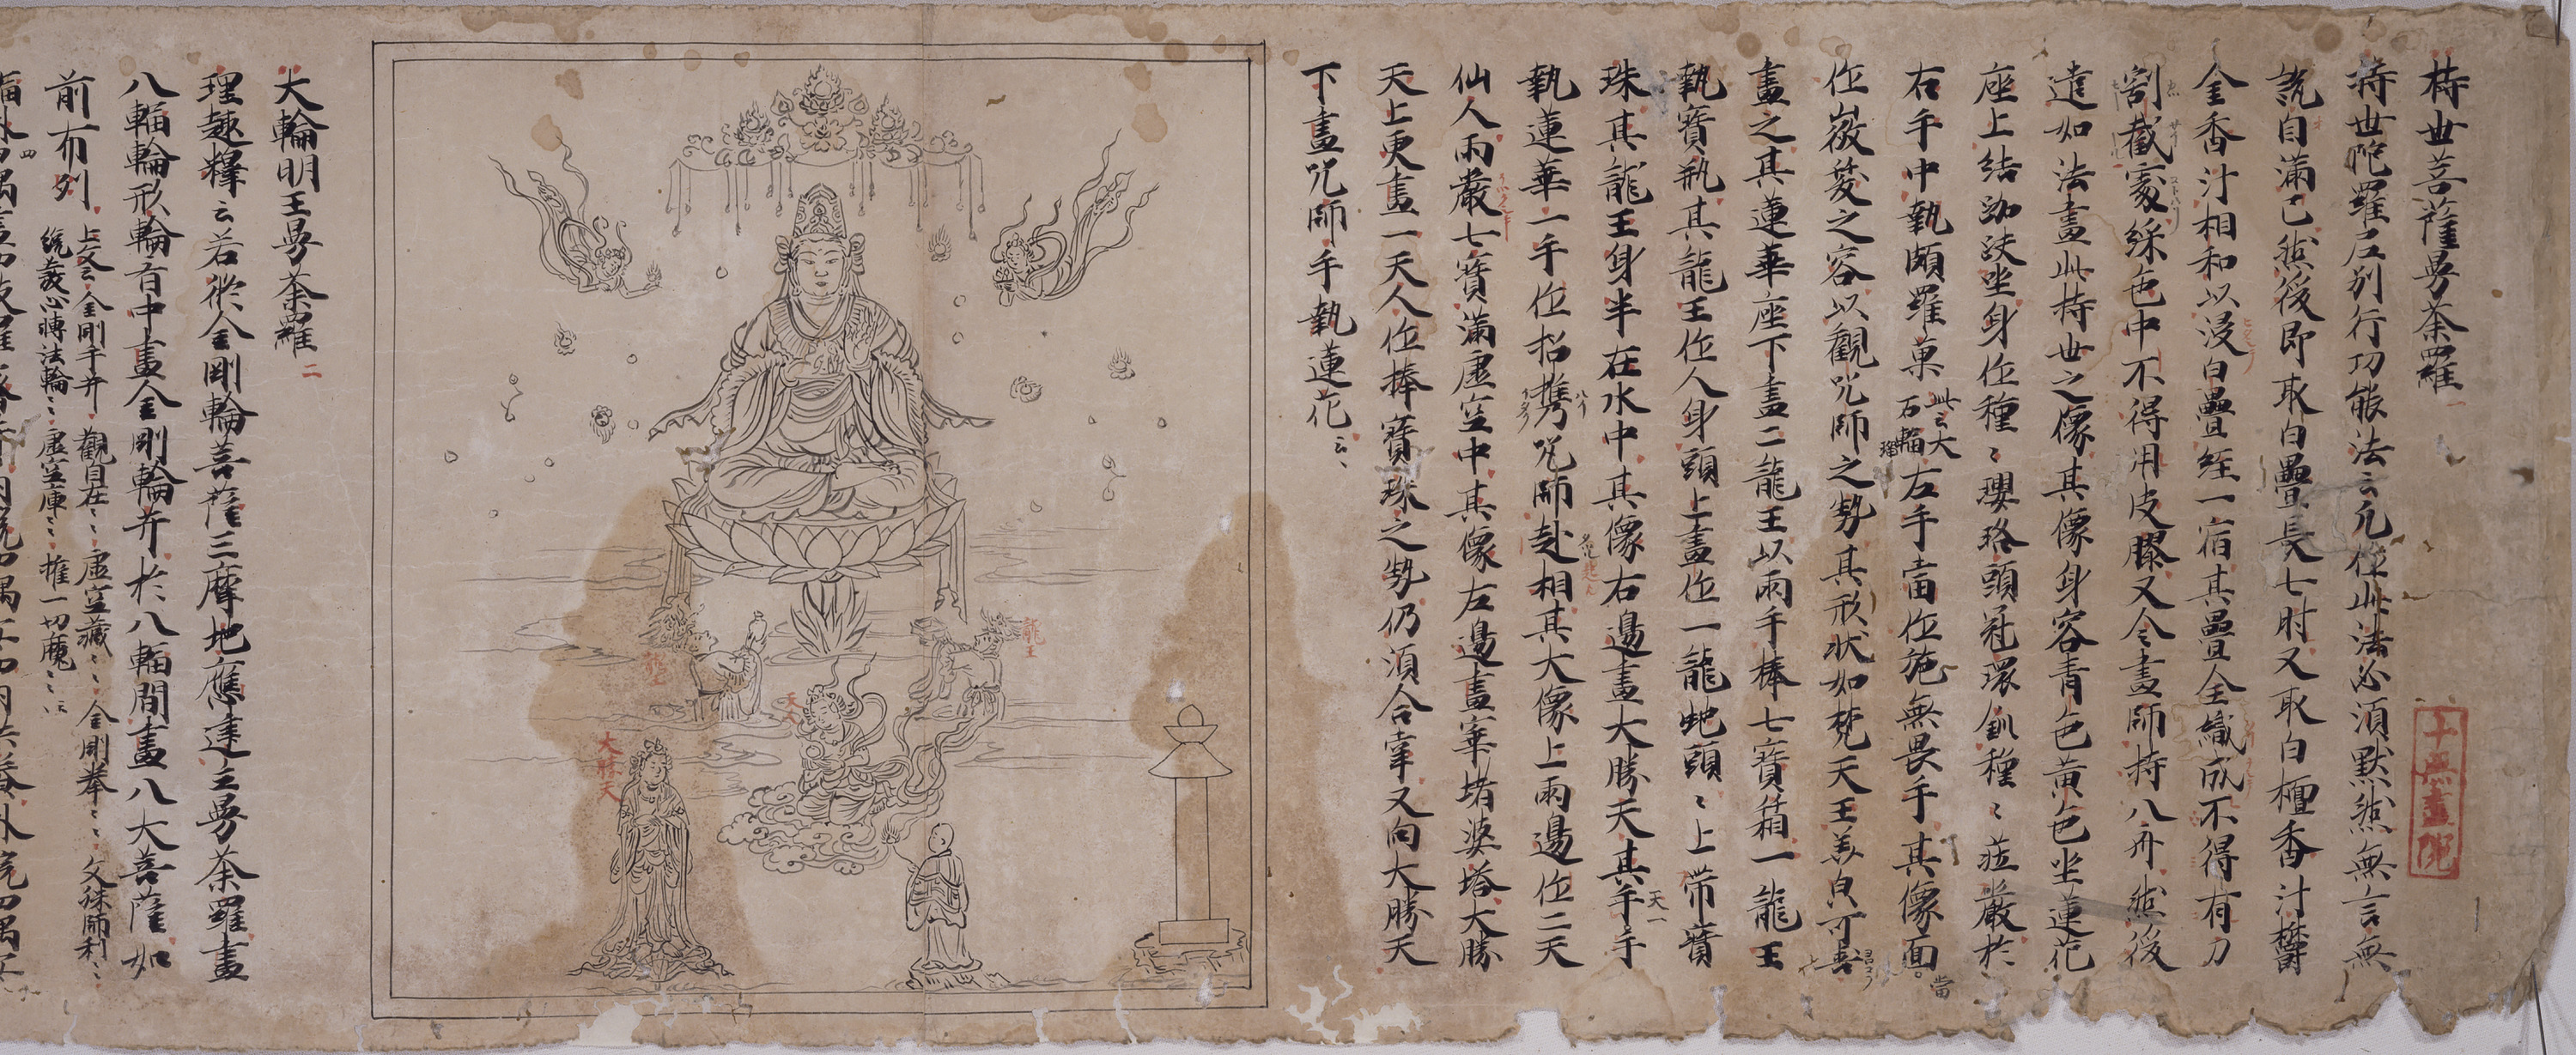 持世菩薩曼荼羅 一
持世陀羅尼別行功能法云凡作此法必須默然無言無
說自滿已然後即取白疊長七肘又取白檀香汁欝
金香汁相和以浸白疊經一宿其疊全織成不得有刀
割截處綵色中不得用皮膠又令畫師持八齋然後
遣如法畫此持世之像其像身容青色黃色坐蓮花
座上結跏趺坐身作種〻瓔珞頭冠環釧種〻莊嚴於
右手中執頗羅菓 此云大石榴 左手當作施無畏手其像面
作微笑之容以觀咒師之勢其形狀如梵天王美皃可喜
畫之其蓮華座下畫二龍王以兩手捧七寶箱一龍王
執寶瓶其龍王作人身頭上畫作一龍虵頭〻上帶寶
珠其龍王身半在水中其像右邊畫大勝天其手一手
執蓮華一手作招携咒師赴相其大像上兩邊作二天
仙人雨嚴七寶滿虛空中其像左邊畫窣堵婆塔大勝
天上更畫一天人作捧寶珠之勢仍須合掌又向大勝天
下畫咒師手執蓮花云〻
十無盡院
龍王
龍王
天人
大勝天
大輪明王曼荼羅 二
理趣釋云若依金剛輪菩薩三摩地應建立曼荼羅畫
八輻輪形輪首中畫金剛輪并於八輻間畫八大菩薩如
前布列 上文云金剛手并 觀自在〻 虛空藏〻 金剛拳〻 文殊師利〻
纔發心轉法輪〻 虛空庫〻 摧一切魔〻